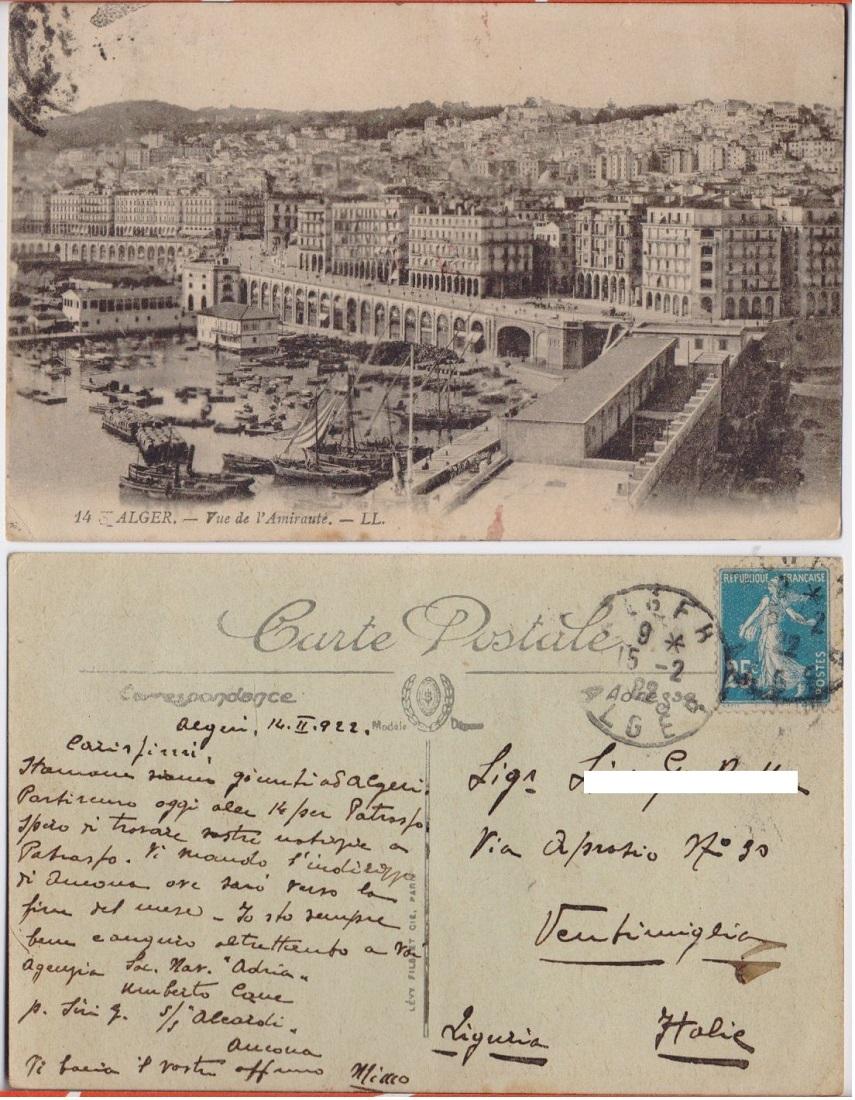 14 ALGER. — Vue de l'Amirauté. — LL.
Carte Postale
Correspondance
Adresse
Modèle
RÉPUBLIQUE FRANÇAISE
25c
POSTES
ALGER
9 *
15 -2
22
ALGER
LÉVY FILS ET CIE, PARIS
Algeri, 14.II.922.
Carissimi,
Stamane siamo giunti ad Algeri.
Partiremo oggi alle 14 per Patrasso
spero di trovare vostre notizie a
Patrasso. Vi mando l'indirizzo
di Ancona ove sarò verso la
fine del mese - Io sto sempre
bene e auguro altrettanto a Voi
Agenzia Soc. Nav. "Adria"
Umberto Cave
p. Siri G. S/S "Aleardi"
Ancona
Vi bacia il vostro aff
Sigr
Via Aprosio No 30
Ventimiglia
Liguria Italie